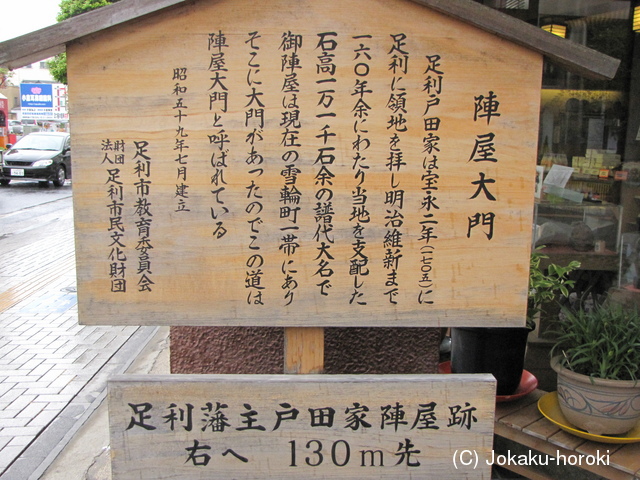 陣屋大門
足利戸田家は宝永二年(一七〇五)に
足利に領地を拝し明治維新まで
一六〇年余にわたり当地を支配した
石高一万一千石余の譜代大名で
御陣屋は現在の雪輪町一帯にあり
そこに大門があったのでこの道は
陣屋大門と呼ばれている
昭和五十九年七月建立
足利市教育委員会
財団法人 足利市民文化財団
足利藩主戸田家陣屋跡
右へ 130m先
(C) Jokaku-horoki